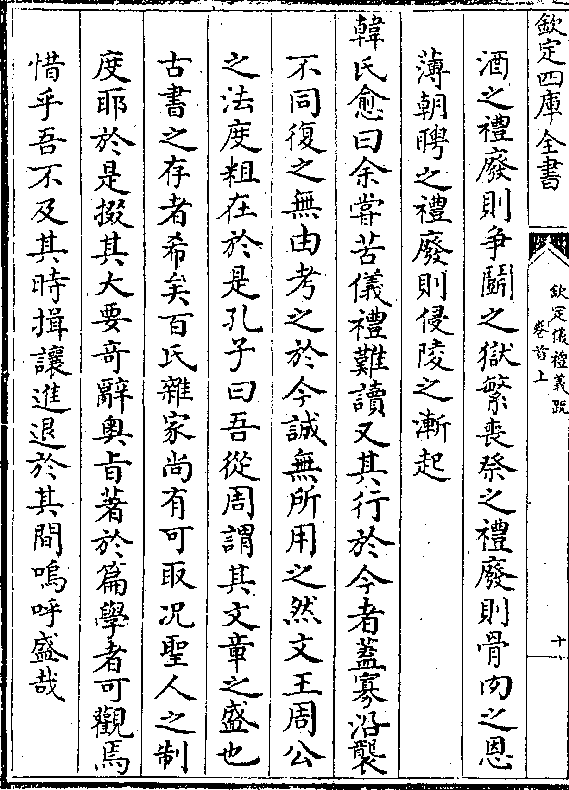 欽定四庫全書
欽定儀禮義疏
卷首上
十
酒之禮廢則爭鬬之獄繁喪祭之禮廢則骨肉之恩
薄朝聘之禮廢則侵陵之漸起
韓氏愈曰余嘗苦儀禮難讀又其行於今者蓋寡沿襲
不同復之無由考之於今誠無所用之然文王周公
之法度粗在於是孔子曰吾從周謂其文章之盛也
古書之存者希矣百氏雜家尚有可取况聖人之制
度耶於是掇其大要竒辭奥旨著於篇學者可觀焉
惜乎吾不及其時揖讓進退於其間嗚呼盛哉